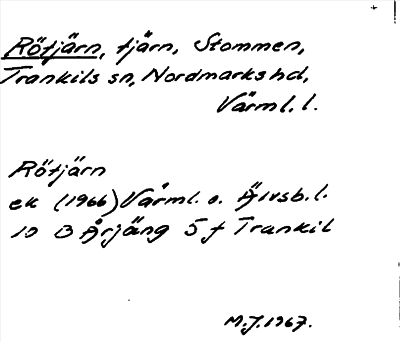 Rötjärn, tjärn, Stommen,
Trankils sn, Nordmarks hd,
Värml. l.
Rötjärn
ek (1966) Värml. o. Älvsb. l.
10 B Årjäng 5 f Trankil
M.J. 1967.